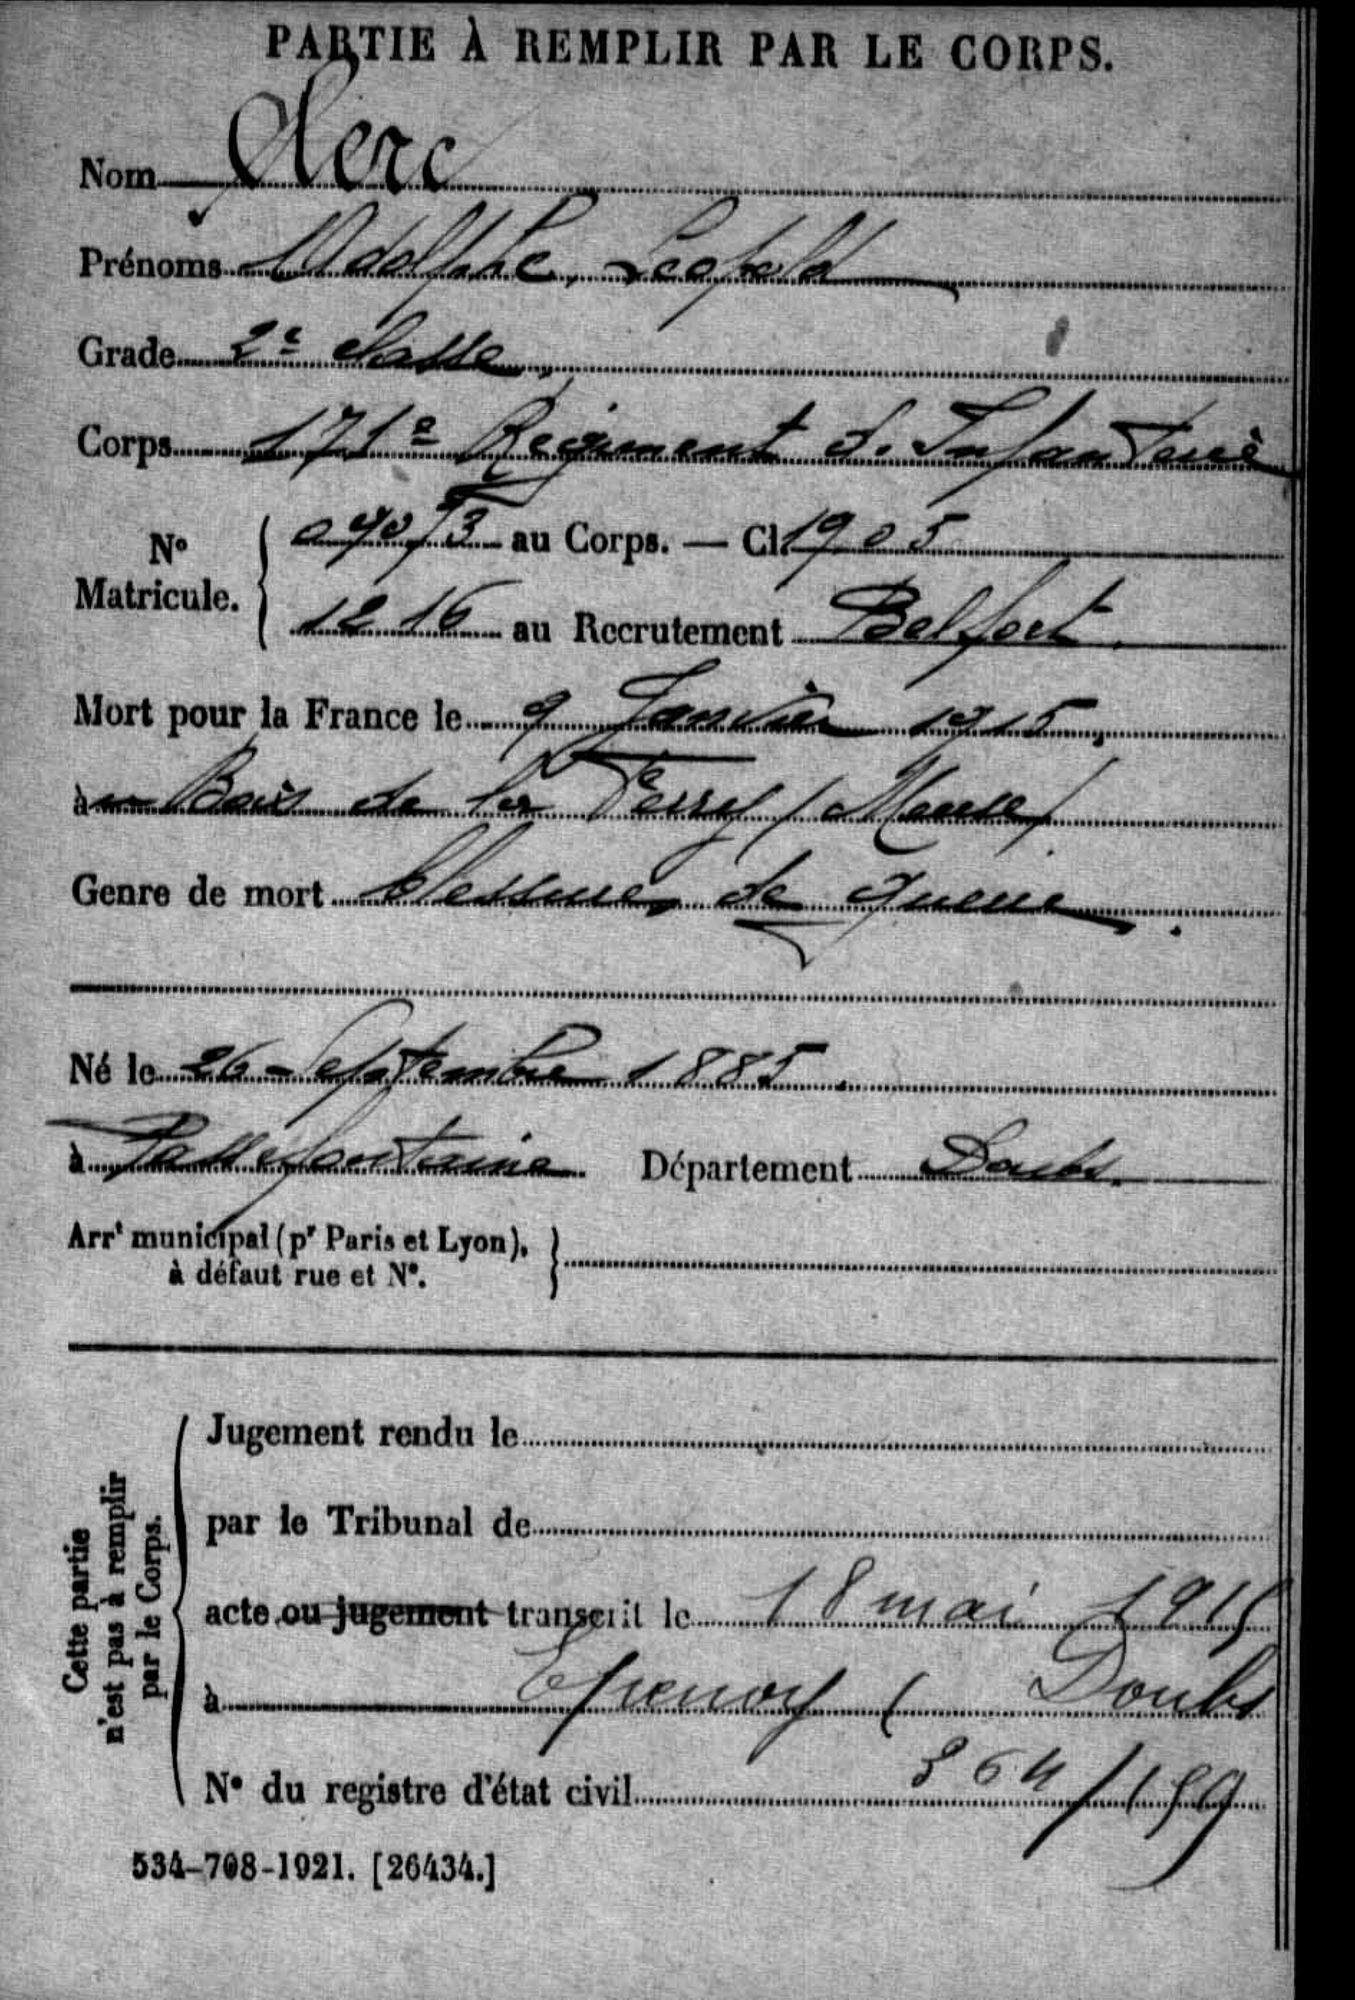 PARTIE À REMPLIR PAR LE CORPS.
Nom Clerc
Prénoms Adolphe, Léopold
Grade 2e classe
Corps 171e Régiment d'Infanterie
No Matricule. { au Corps. — Cl. 1905
1216 au Recrutement Belfort.
Mort pour la France le 9 Janvier 1915,
à Bois de la (Meuse)
Genre de mort blessures de guerre.
Né le 26 Septembre 1885.
à Passefontaine Département Doubs.
Arrt municipal (pr Paris et Lyon), à défaut rue et No. }
Cette partie n'est pas à remplir par le Corps.
Jugement rendu le
par le Tribunal de
acte ou jugement transcrit le 18 mai 1915
à Epenoy ( Doubs
No du registre d'état civil 364/159
534-708-1921. [26434.]